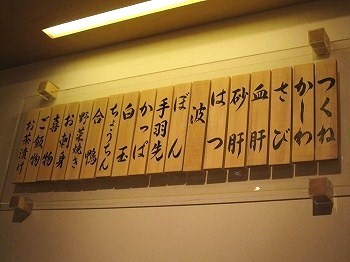 つくね
かしわ
さび
血肝
砂肝
はつ
波
ぼん
手羽先
かっぱ
白玉
ちょうちん
合鴨
野菜焼き
お刺身
喜
ご飯物
お茶漬け